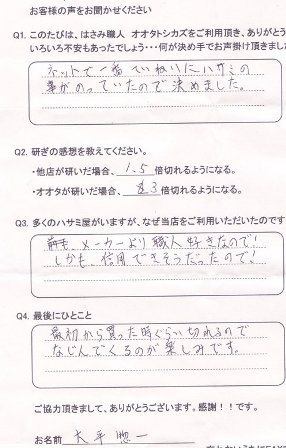 お客様の声をお聞かせください
Q1. このたびは、はさみ職人 オオタトシカズをご利用頂き、ありがとう
いろいろ不安もあったでしょう・・・何が決め手でお声掛け頂きまし
ネットで一番ていねいにハサミの
事がのっていたので決めました。
Q2. 研ぎの感想を教えてください。
・他店が研いだ場合、 1.5 倍切れるようになる。
・オオタが研いだ場合、 3 倍切れるようになる。
Q3. 多くのハサミ屋がいますが、なぜ当店をご利用いただいたのです
メーカーより職人好きなので!
しかも、信用できそうだったので!
Q4. 最後にひとこと
最初から買った時ぐらい切れるので
なじんでくるのが楽しみです。
ご協力頂きまして、ありがとうございます。感謝!!です。
お名前 大平 惣一